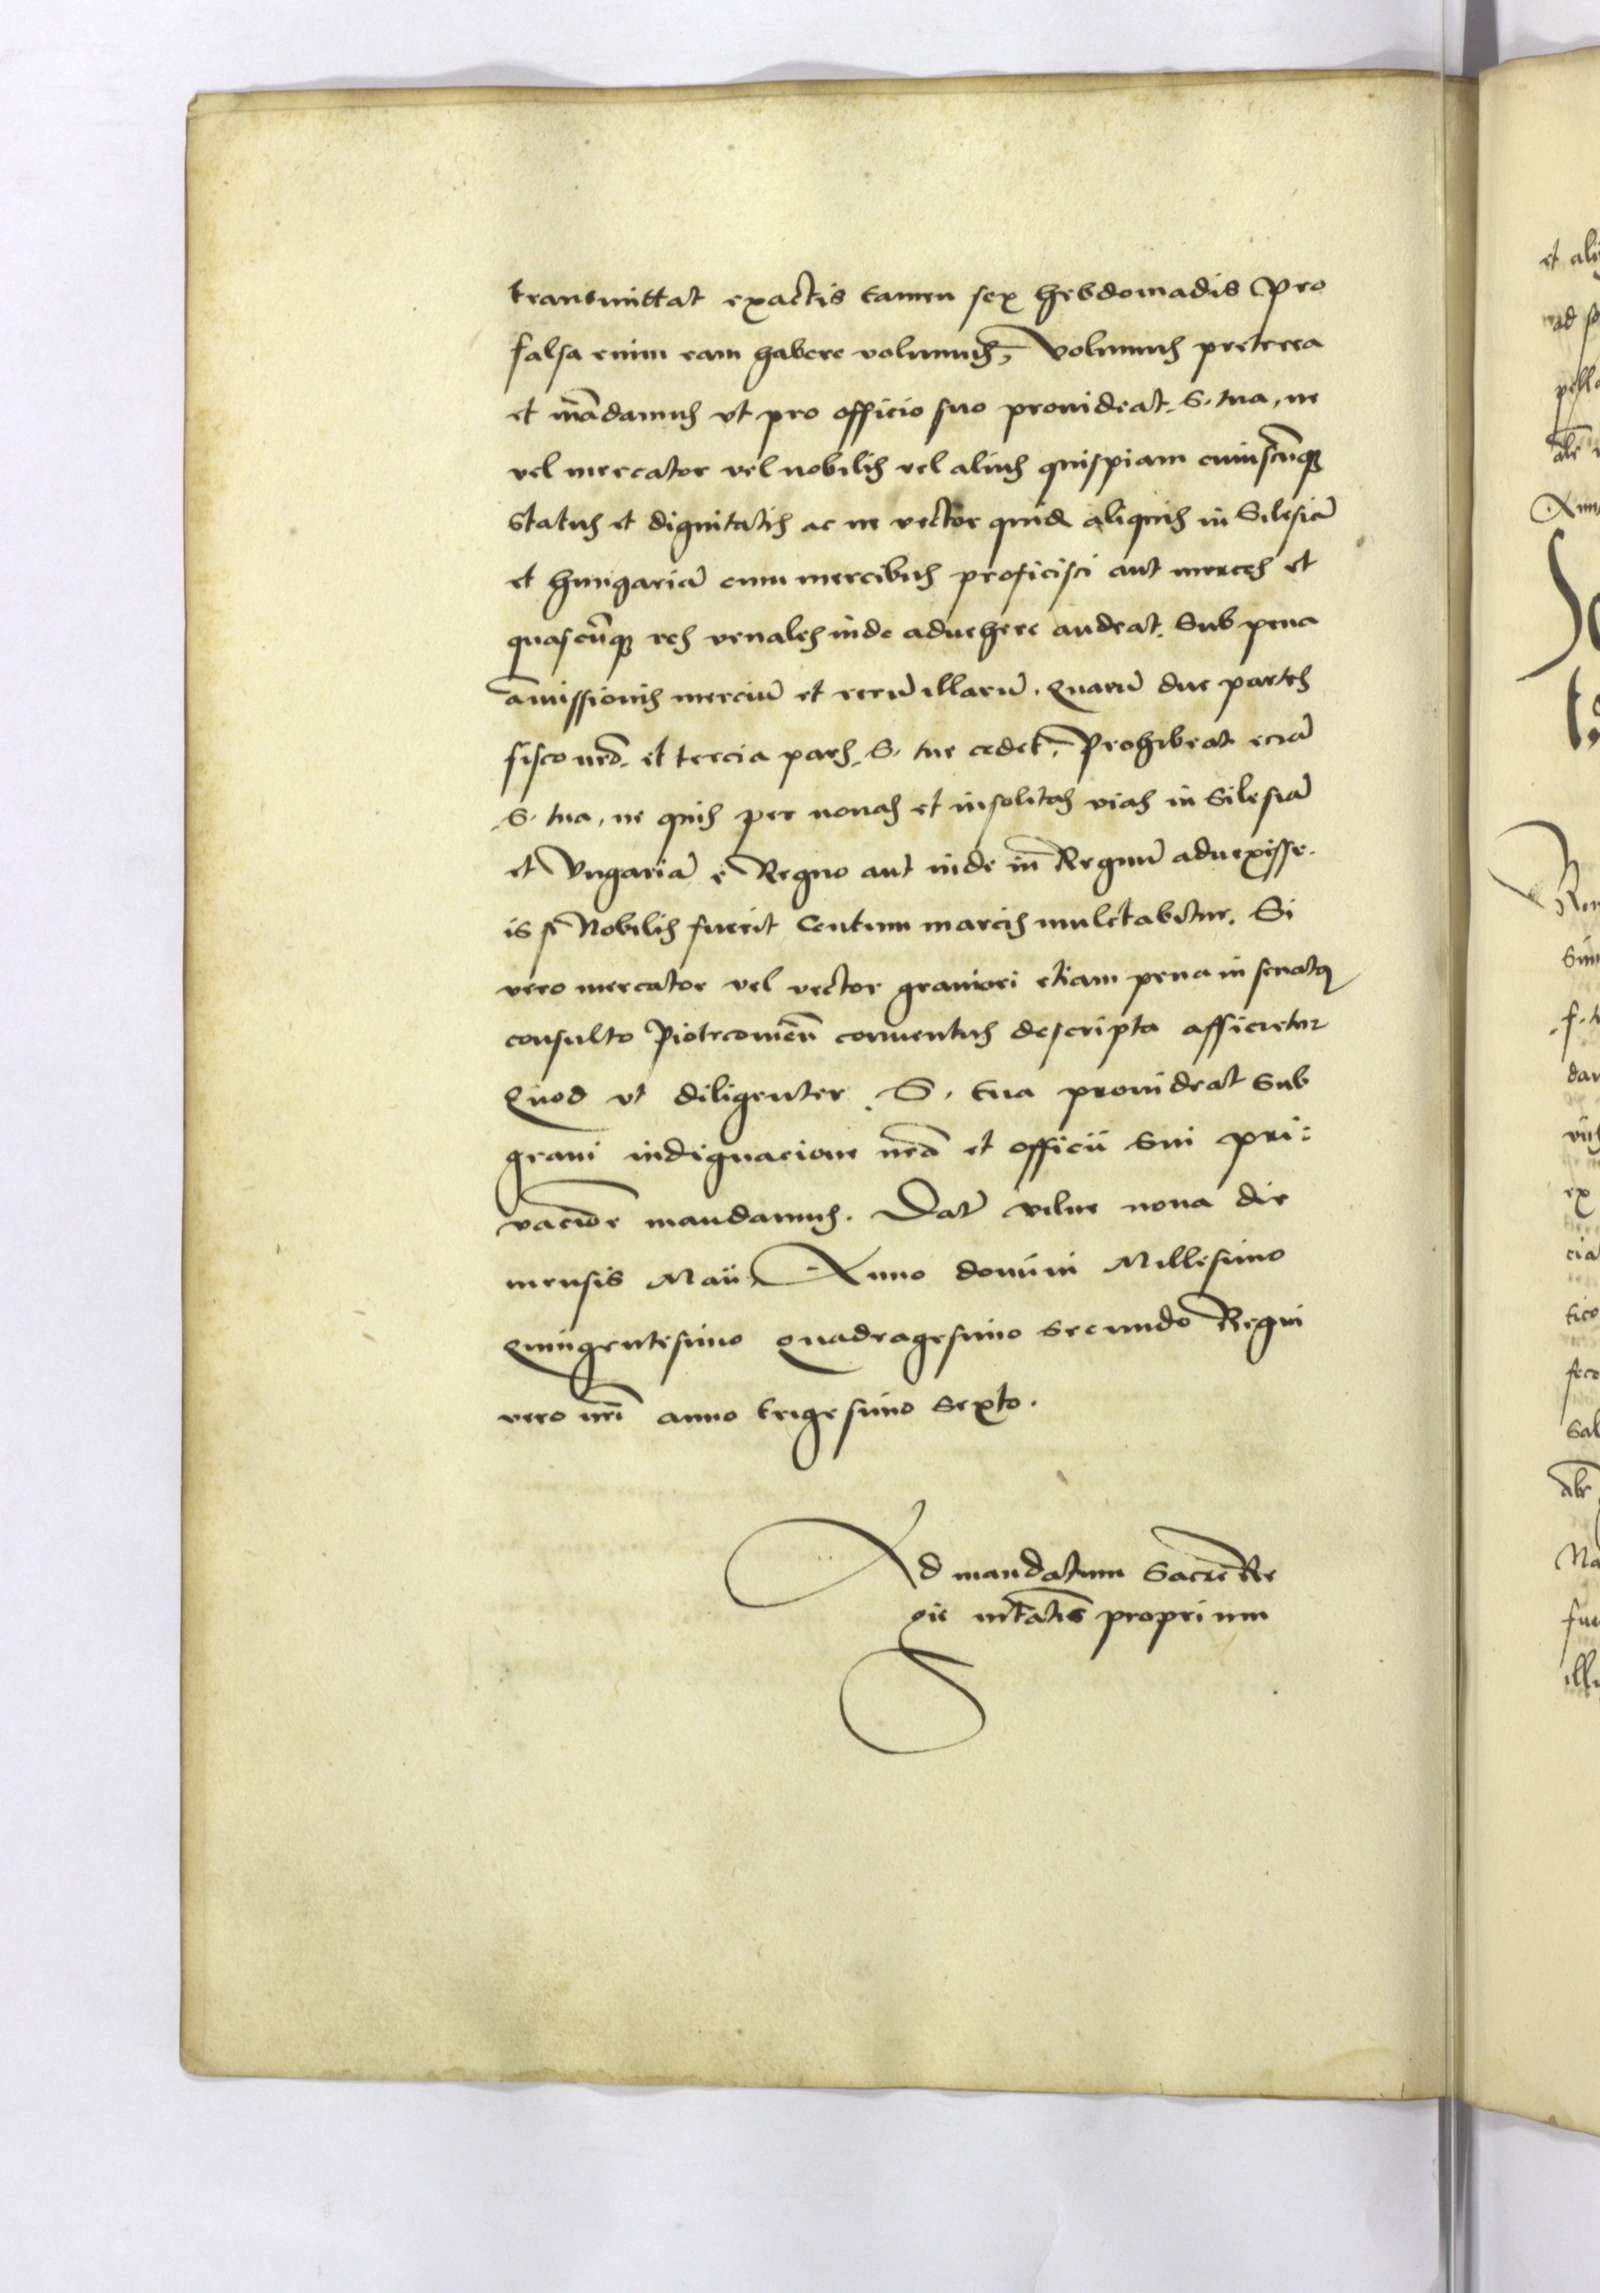 transmittat exactis tamen sex hebdomadis Pro
falsa enim eam habere volumus, Volumus preterea
et mādamus vt pro officio suo prouideat S. tua, ne
vel mercator vel nobilis vel alius quispiam cuiuscūq3
status et dignitatis ac ne vector quidē aliquis in Silesiā
et hungariā cum mercibus proficisci aut merces et
quascūq3 res venales inde aduehere audeat. Sub pena
amissionis merciū et rerū illarū. Quarū due partes
fisco nrō. et tercia pars S. tue cedet, Prohibeat eciā
S. tua, ne quis per nouas et insolitas vias in Silesiā
et Vngariā e Regno aut inde in Regnū aduexisse.
is si Nobilis fuerit Centum marcis mulctabitur. Si
vero mercator vel vector grauiori etiam pena in senatus
consulto Piotrcouień conuentus descripta afficietur
Quod vt diligenter S. tua prouideat sub
graui indignacione nrā et officii sui pri:
vacione mandamus. Dat̄ vilne nona die
mensis Maii, Anno domini Millesimo
Quingentesimo quadragesimo secundo Regni
vero nrī anno trigesimo sexto.
Ad mandatum Sacre Re
gie mtatis proprium